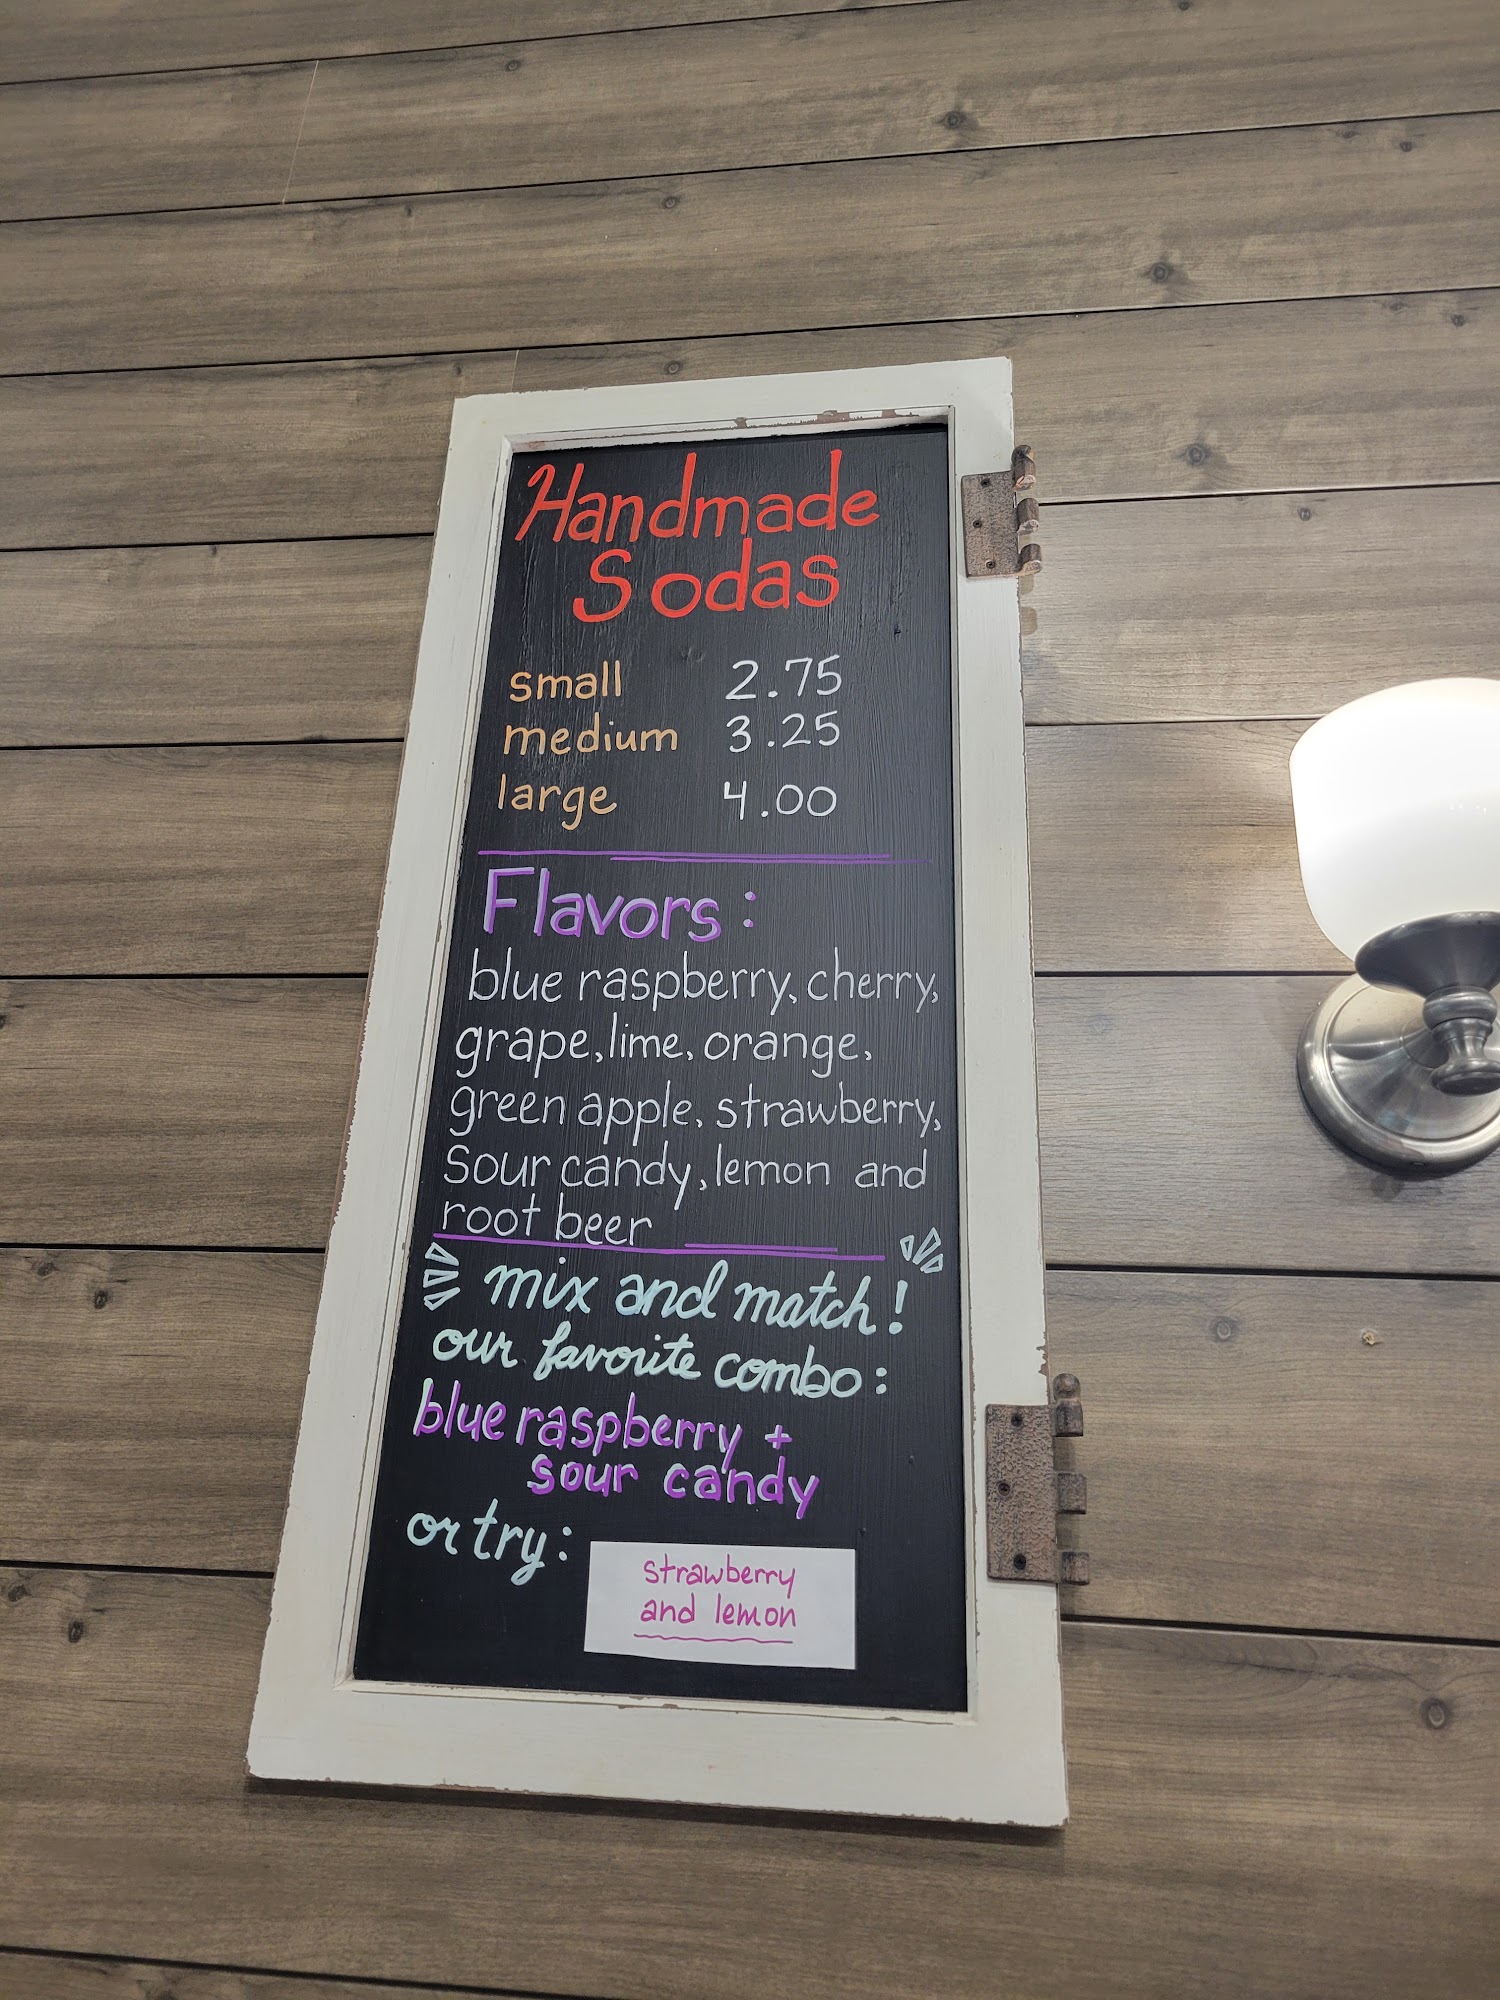 Handmade
Sodas
small 2.75
medium 3.25
large 4.00
Flavors:
blue raspberry, cherry,
grape, lime, orange,
green apple, strawberry,
sour candy, lemon and
root beer
mix and match!
our favorite combo:
blue raspberry +
sour candy
or try:
strawberry
and lemon